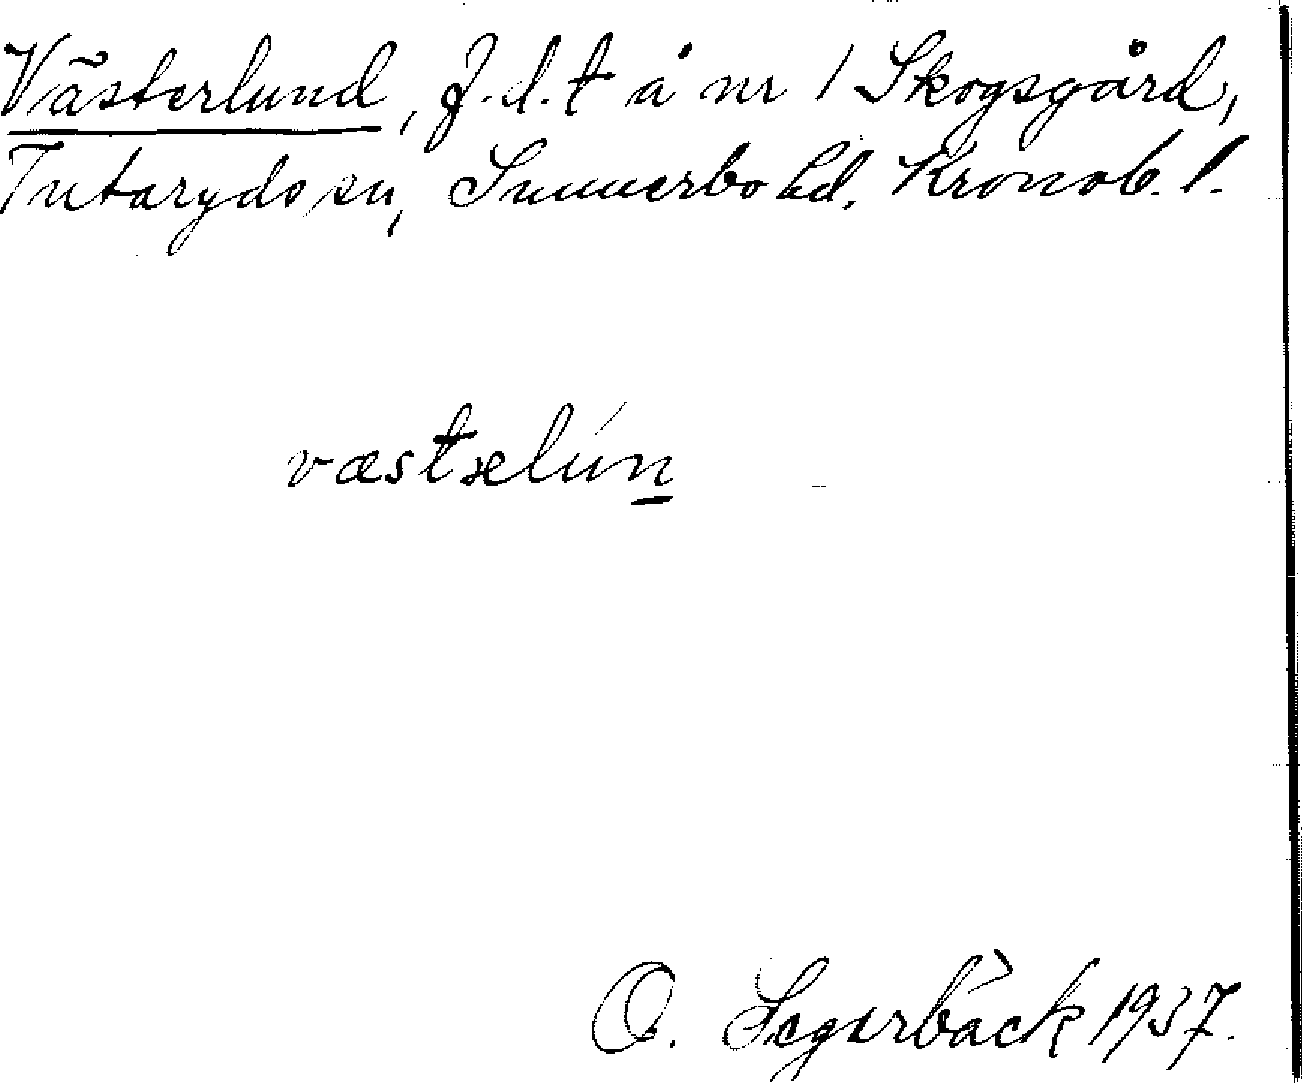 Västerlund, f.d.t å nr 1 Skogsgård,
Tutaryds sn, Sunnerbo hd. Kronob. l.
væstælún
O. Segerbäck 1937.